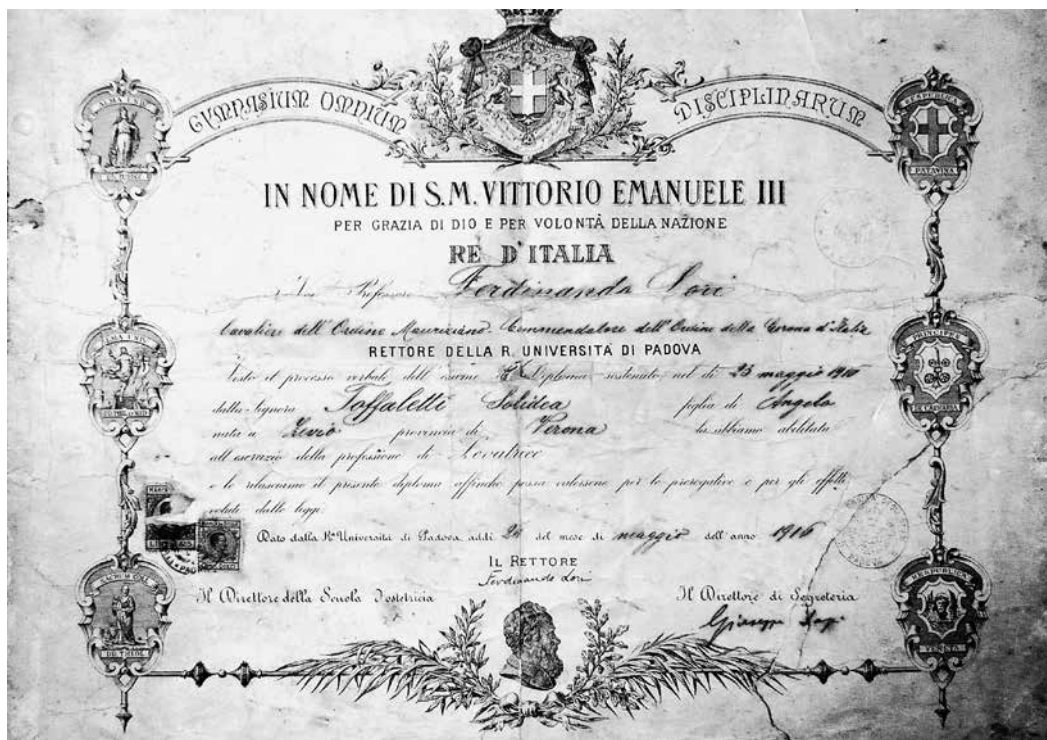 GYMNASIUM OMNIUM DISCIPLINARUM
IN NOME DI S.M. VITTORIO EMANUELE III
PER GRAZIA DI DIO E PER VOLONTÀ DELLA NAZIONE
RE D'ITALIA
Noi Professore Ferdinando Lori
Cavaliere dell'Ordine Mauriziano Commendatore dell'Ordine della Corona d'Italia
RETTORE DELLA R. UNIVERSITÀ DI PADOVA
Visto il processo verbale dell'esame di Diploma sostenuto nel dì 23 maggio 1916
dalla Signora Toffaletti Solidea figlia di Angelo
nata a Zevio provincia di Verona la abbiamo abilitata
all'esercizio della professione di Levatrice
e le rilasciamo il presente diploma affinchè possa valersene per le prerogative e per gli effetti
voluti dalle leggi.
Dato dalla Rª Università di Padova addì 24 del mese di maggio dell'anno 1916
IL RETTORE
Ferdinando Lori
Il Direttore della Scuola d'ostetricia
Il Direttore di Segreteria
Giuseppe
RESPUBLICA
PATAVINA
PRINCIPES
DE CARRARIA
RESPUBLICA
VENETA